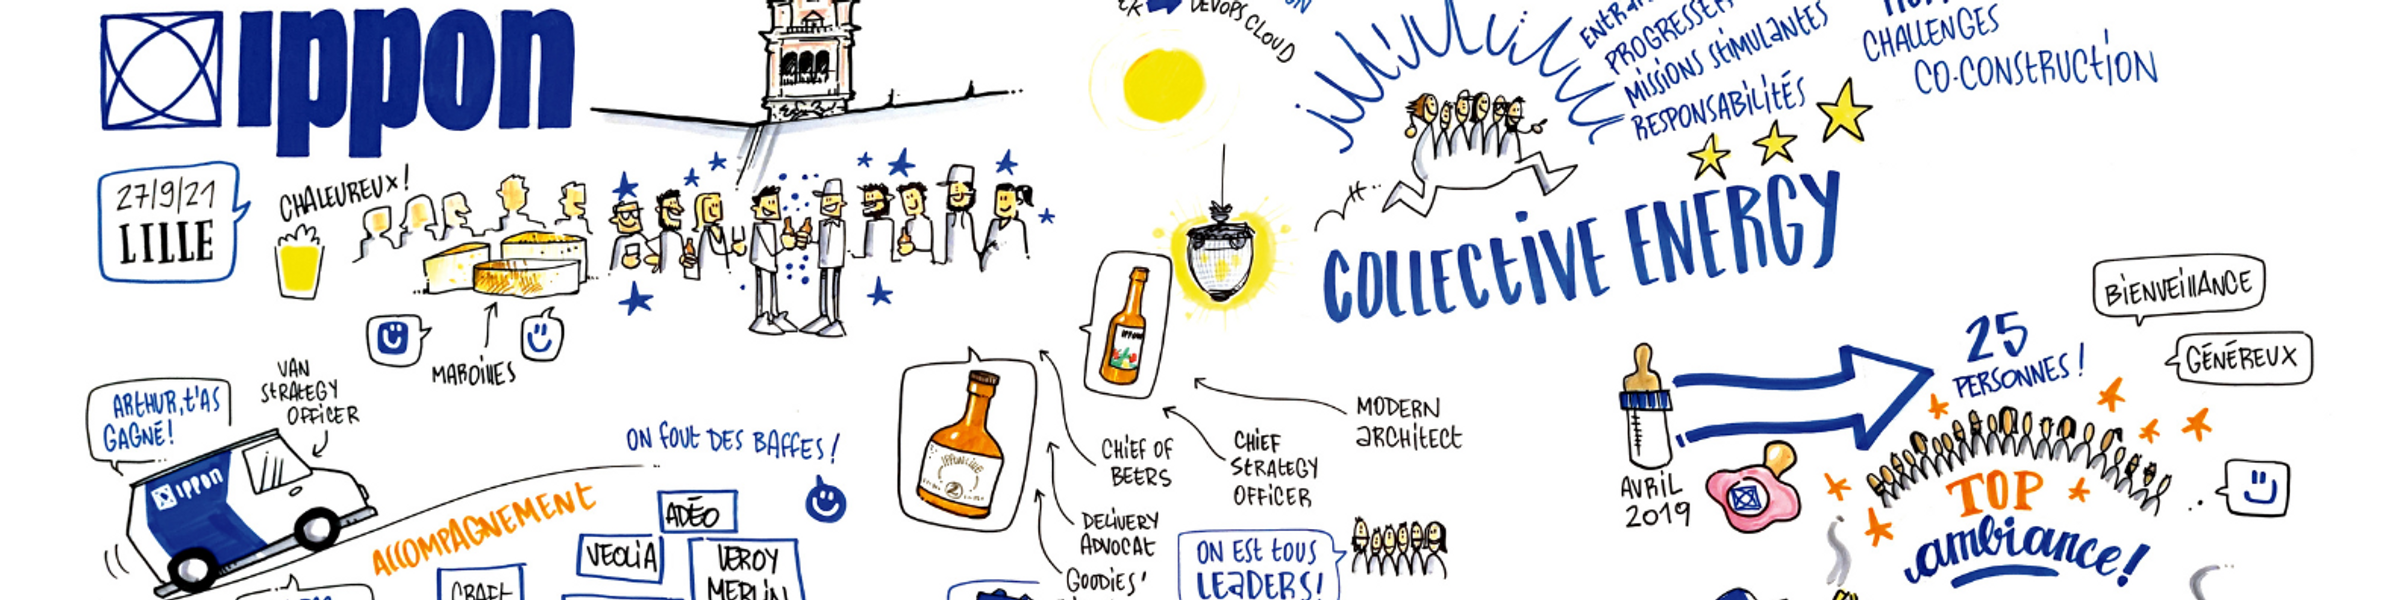 ippon
27/9/21
LILLE
CHALEUREUX!
MAROILLES
VAN
STRATEGY
OFFICER
ARTHUR, T'AS
GAGNÉ!
ippon
ACCOMPAGNEMENT
ON FOUT DES BAFFES!
ADÉO
VEOLIA
LEROY
MERLIN
CRAFT
DEVOPS CLOUD
PROGRESSER
MISSIONS STIMULANTES
RESPONSABILITÉS
CHALLENGES
CO-CONSTRUCTION
COLLECTIVE ENERGY
IPPON
CHIEF OF
BEERS
DELIVERY
ADVOCAT
GOODIES'
CHIEF
STRATEGY
OFFICER
MODERN
ARCHITECT
ON EST TOUS
LEADERS!
AVRIL
2019
25
PERSONNES!
BIENVEILLANCE
GÉNÉREUX
TOP
ambiance!